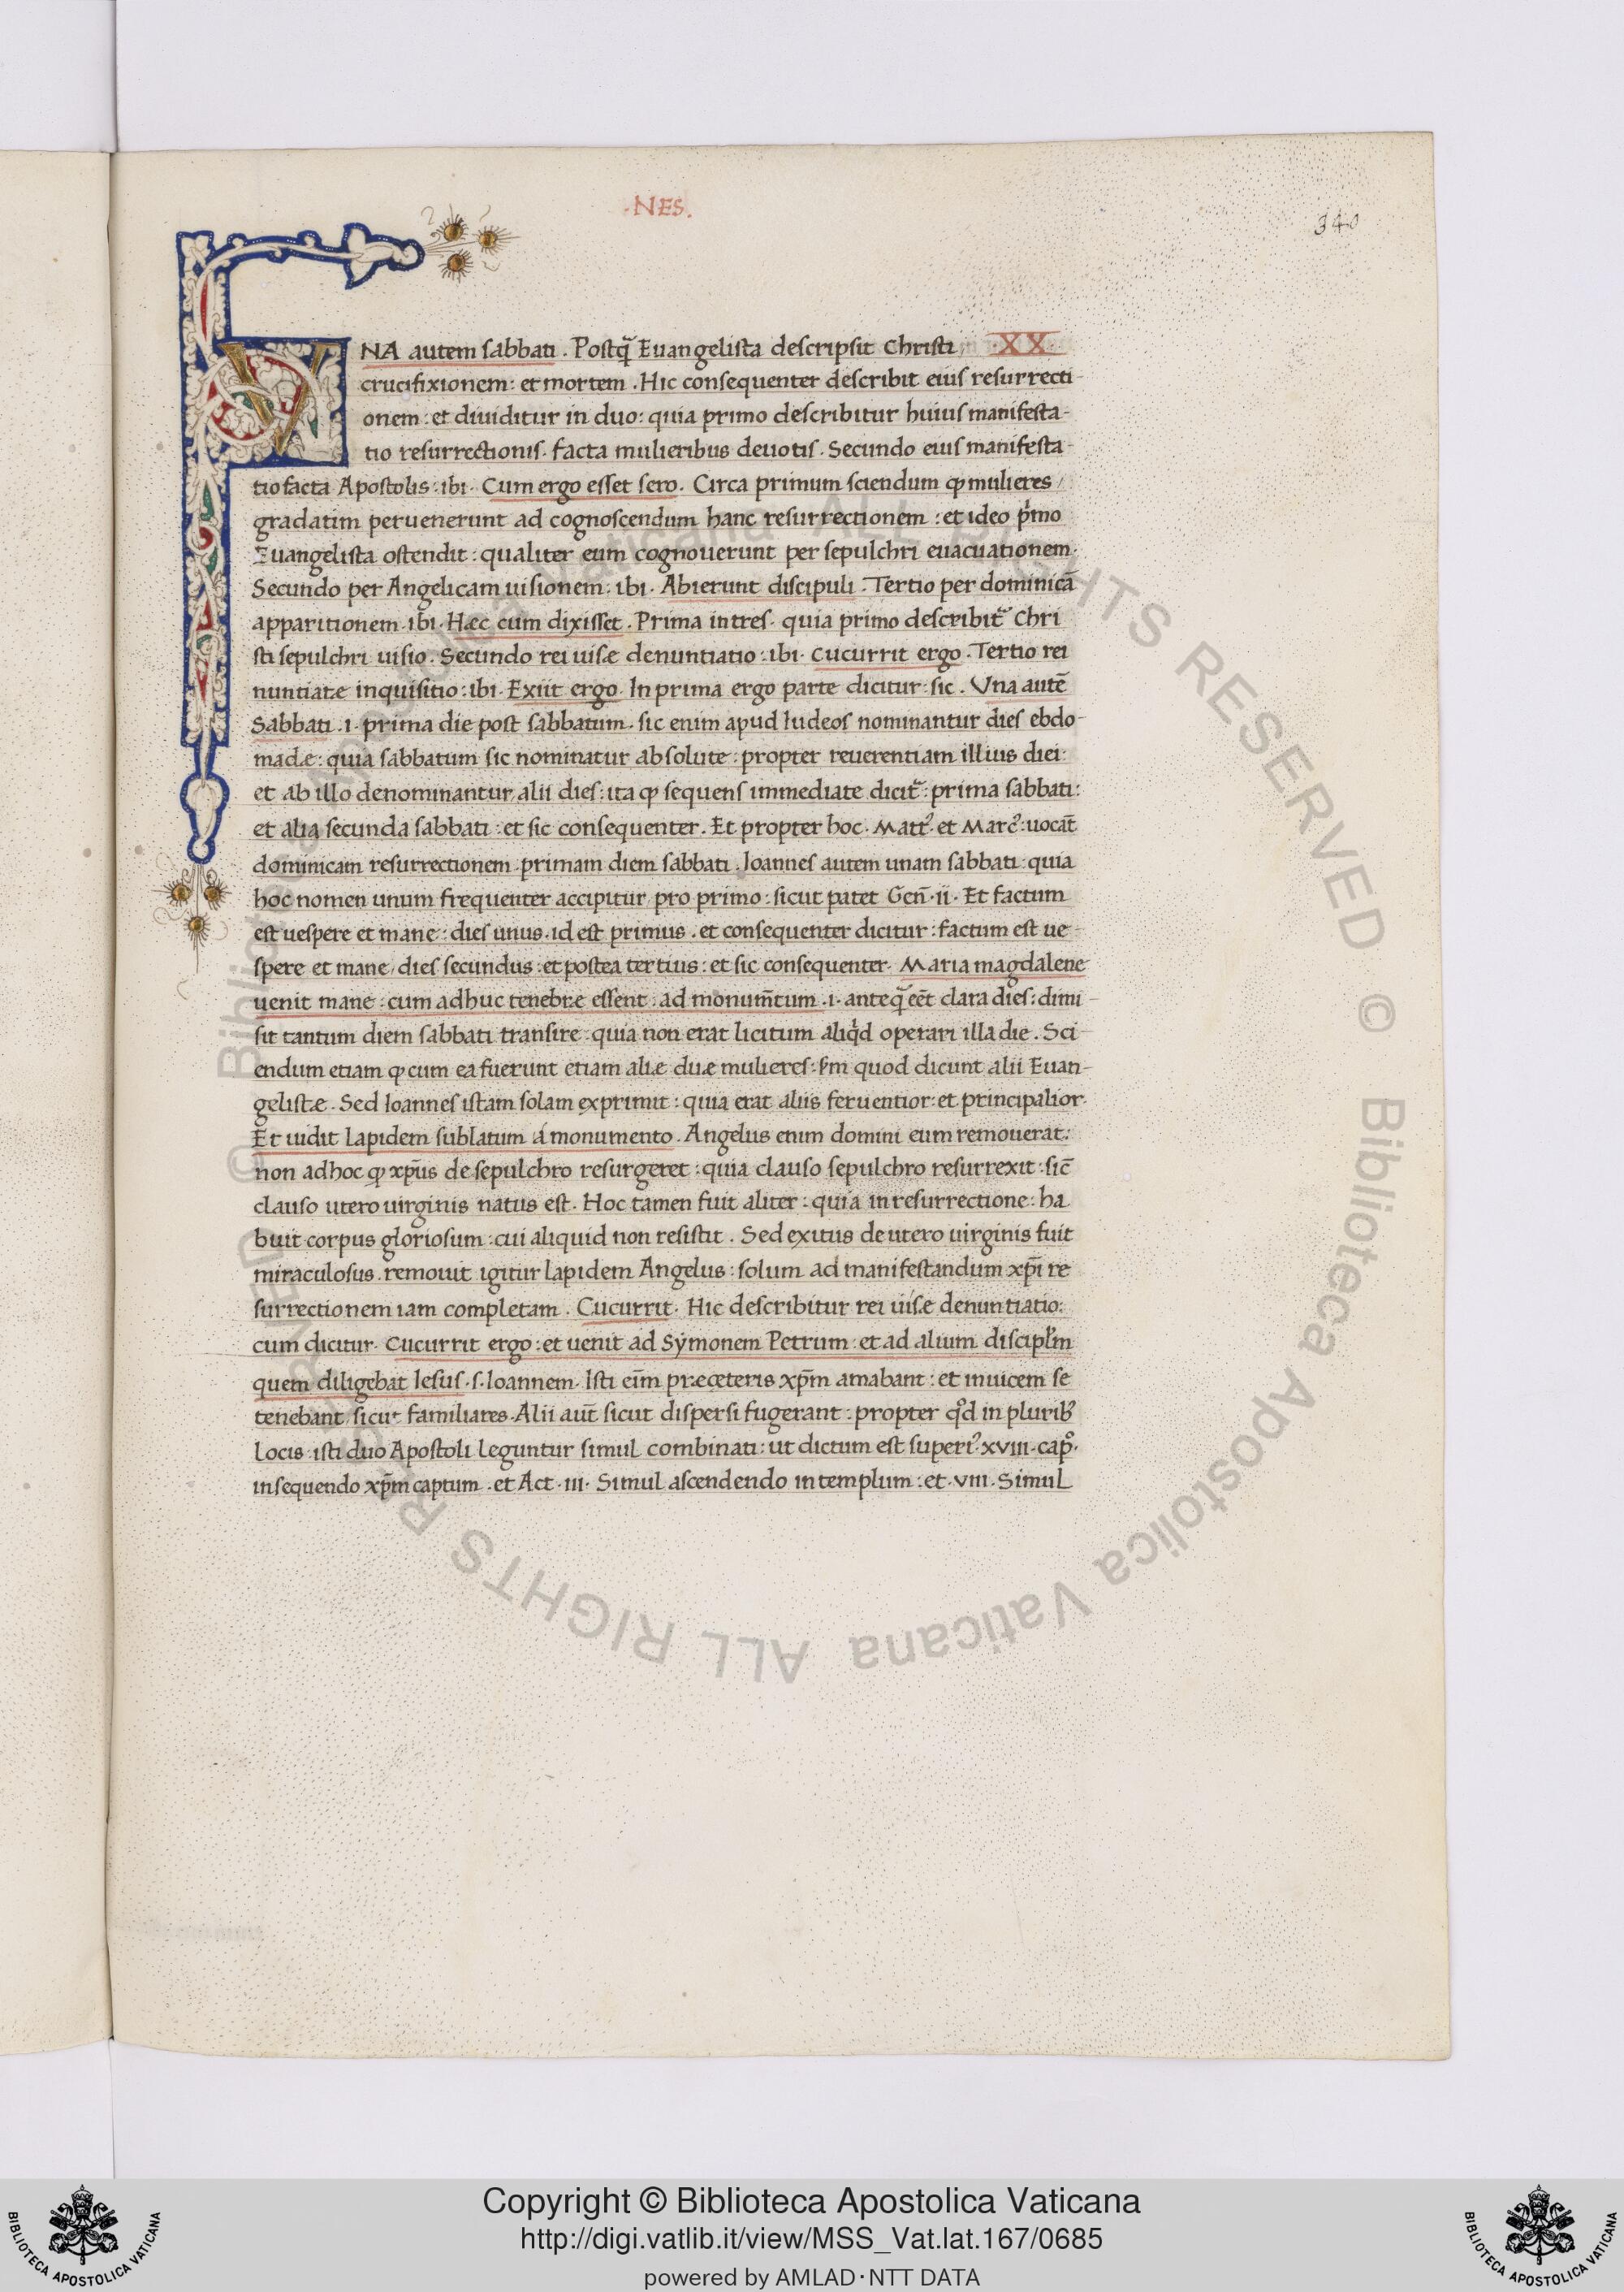 ·NES.
340
VNA autem sabbati . Postq̄ Euangelista descripsit Christi XX
crucifixionem : et mortem . Hic consequenter describit eius resurrecti-
onem : et diuiditur in duo : quia primo describitur huius manifesta-
tio resurrectionis . facta mulieribus deuotis . Secundo eius manifesta-
tio facta Apostolis : ibi . Cum ergo esset sero . Circa primum sciendum ꝙ mulieres /
gradatim peruenerunt ad cognoscendum hanc resurrectionem : et ideo pͥmo
Euangelista ostendit : qualiter eum cognouerunt per sepulchri euacuationem .
Secundo per Angelicam uisionem : ibi . Abierunt discipuli . Tertio per dominicā
apparitionem . ibi . Hæc cum dixisset . Prima in tres . quia primo describit᷑ Chri
sti sepulchri uisio . Secundo rei uisæ denuntiatio : ibi . Cucurrit ergo . Tertio rei
nuntiatæ inquisitio : ibi . Exiit ergo . In prima ergo parte dicitur : sic . Vna autē
Sabbati .i. prima die post sabbatum . sic enim apud Iudeos nominantur dies ebdo-
madæ : quia sabbatum sic nominatur absolute : propter reuerentiam illius diei :
et ab illo denominantur alii dies : ita ꝙ sequens immediate dicit᷑ : prima sabbati :
et alia secunda sabbati : et sic consequenter . Et propter hoc . Matt᾽. et Marc᾽: uocāt
dominicam resurrectionem . primam diem sabbati . Ioannes autem unam sabbati : quia
hoc nomen unum frequenter accipitur pro primo : sicut patet Gen̄ . ii . Et factum
est uespere et mane : dies unus . id est primus . et consequenter dicitur : factum est ue-
spere et mane / dies secundus : et postea tertius : et sic consequenter . Maria magdalene
uenit mane : cum adhuc tenebræ essent : ad monum̄tum .i. anteq̄ eēt clara dies : dimi-
sit tantum diem sabbati transire : quia non erat licitum aliqͥd operari illa die . Sci-
endum etiam ꝙ cum ea fuerunt etiam aliæ duæ mulieres : ẜm quod dicunt alii Euan-
gelistæ . Sed Ioannes istam solam exprimit : quia erat aliis feruentior : et principalior .
Et uidit lapidem sublatum á monumento . Angelus enim domini eum remouerat :
non ad hoc ꝙ xp̄us de sepulchro resurgeret : quia clauso sepulchro resurrexit : sic̄
clauso utero uirginis natus est . Hoc tamen fuit aliter : quia in resurrectione : ha
buit corpus gloriosum : cui aliquid non resistit . Sed exitus de utero uirginis fuit
miraculosus . remouit igitur lapidem Angelus : solum ad manifestandum xp̄i re
surrectionem iam completam . Cucurrit . Hic describitur rei uisæ denuntiatio :
cum dicitur . Cucurrit ergo : et uenit ad Sẏmonem Petrum : et ad alium discipl̄m
quem diligebat Iesus . s. Ioannem . Isti eīm præ cæteris xp̄m amabant : et inuicem se
tenebant sicut familiares . Alii aūt sicut dispersi fugerant : propter qͦd in pluribꝰ
locis : isti duo Apostoli leguntur simul combinati : ut dictum est superiꝰ . xviii . capͦ .
insequendo xp̄m captum . et Act . iii . Simul ascendendo in templum : et . viii . Simul
Copyright © Biblioteca Apostolica Vaticana
http://digi.vatlib.it/view/MSS_Vat.lat.167/0685
powered by AMLAD·NTT DATA
© Biblioteca Apostolica Vaticana ALL RIGHTS RESERVED © Biblioteca Apostolica Vaticana ALL RIGHTS RESERVED
BIBLIOTECA APOSTOLICA VATICANA
BIBLIOTECA APOSTOLICA VATICANA